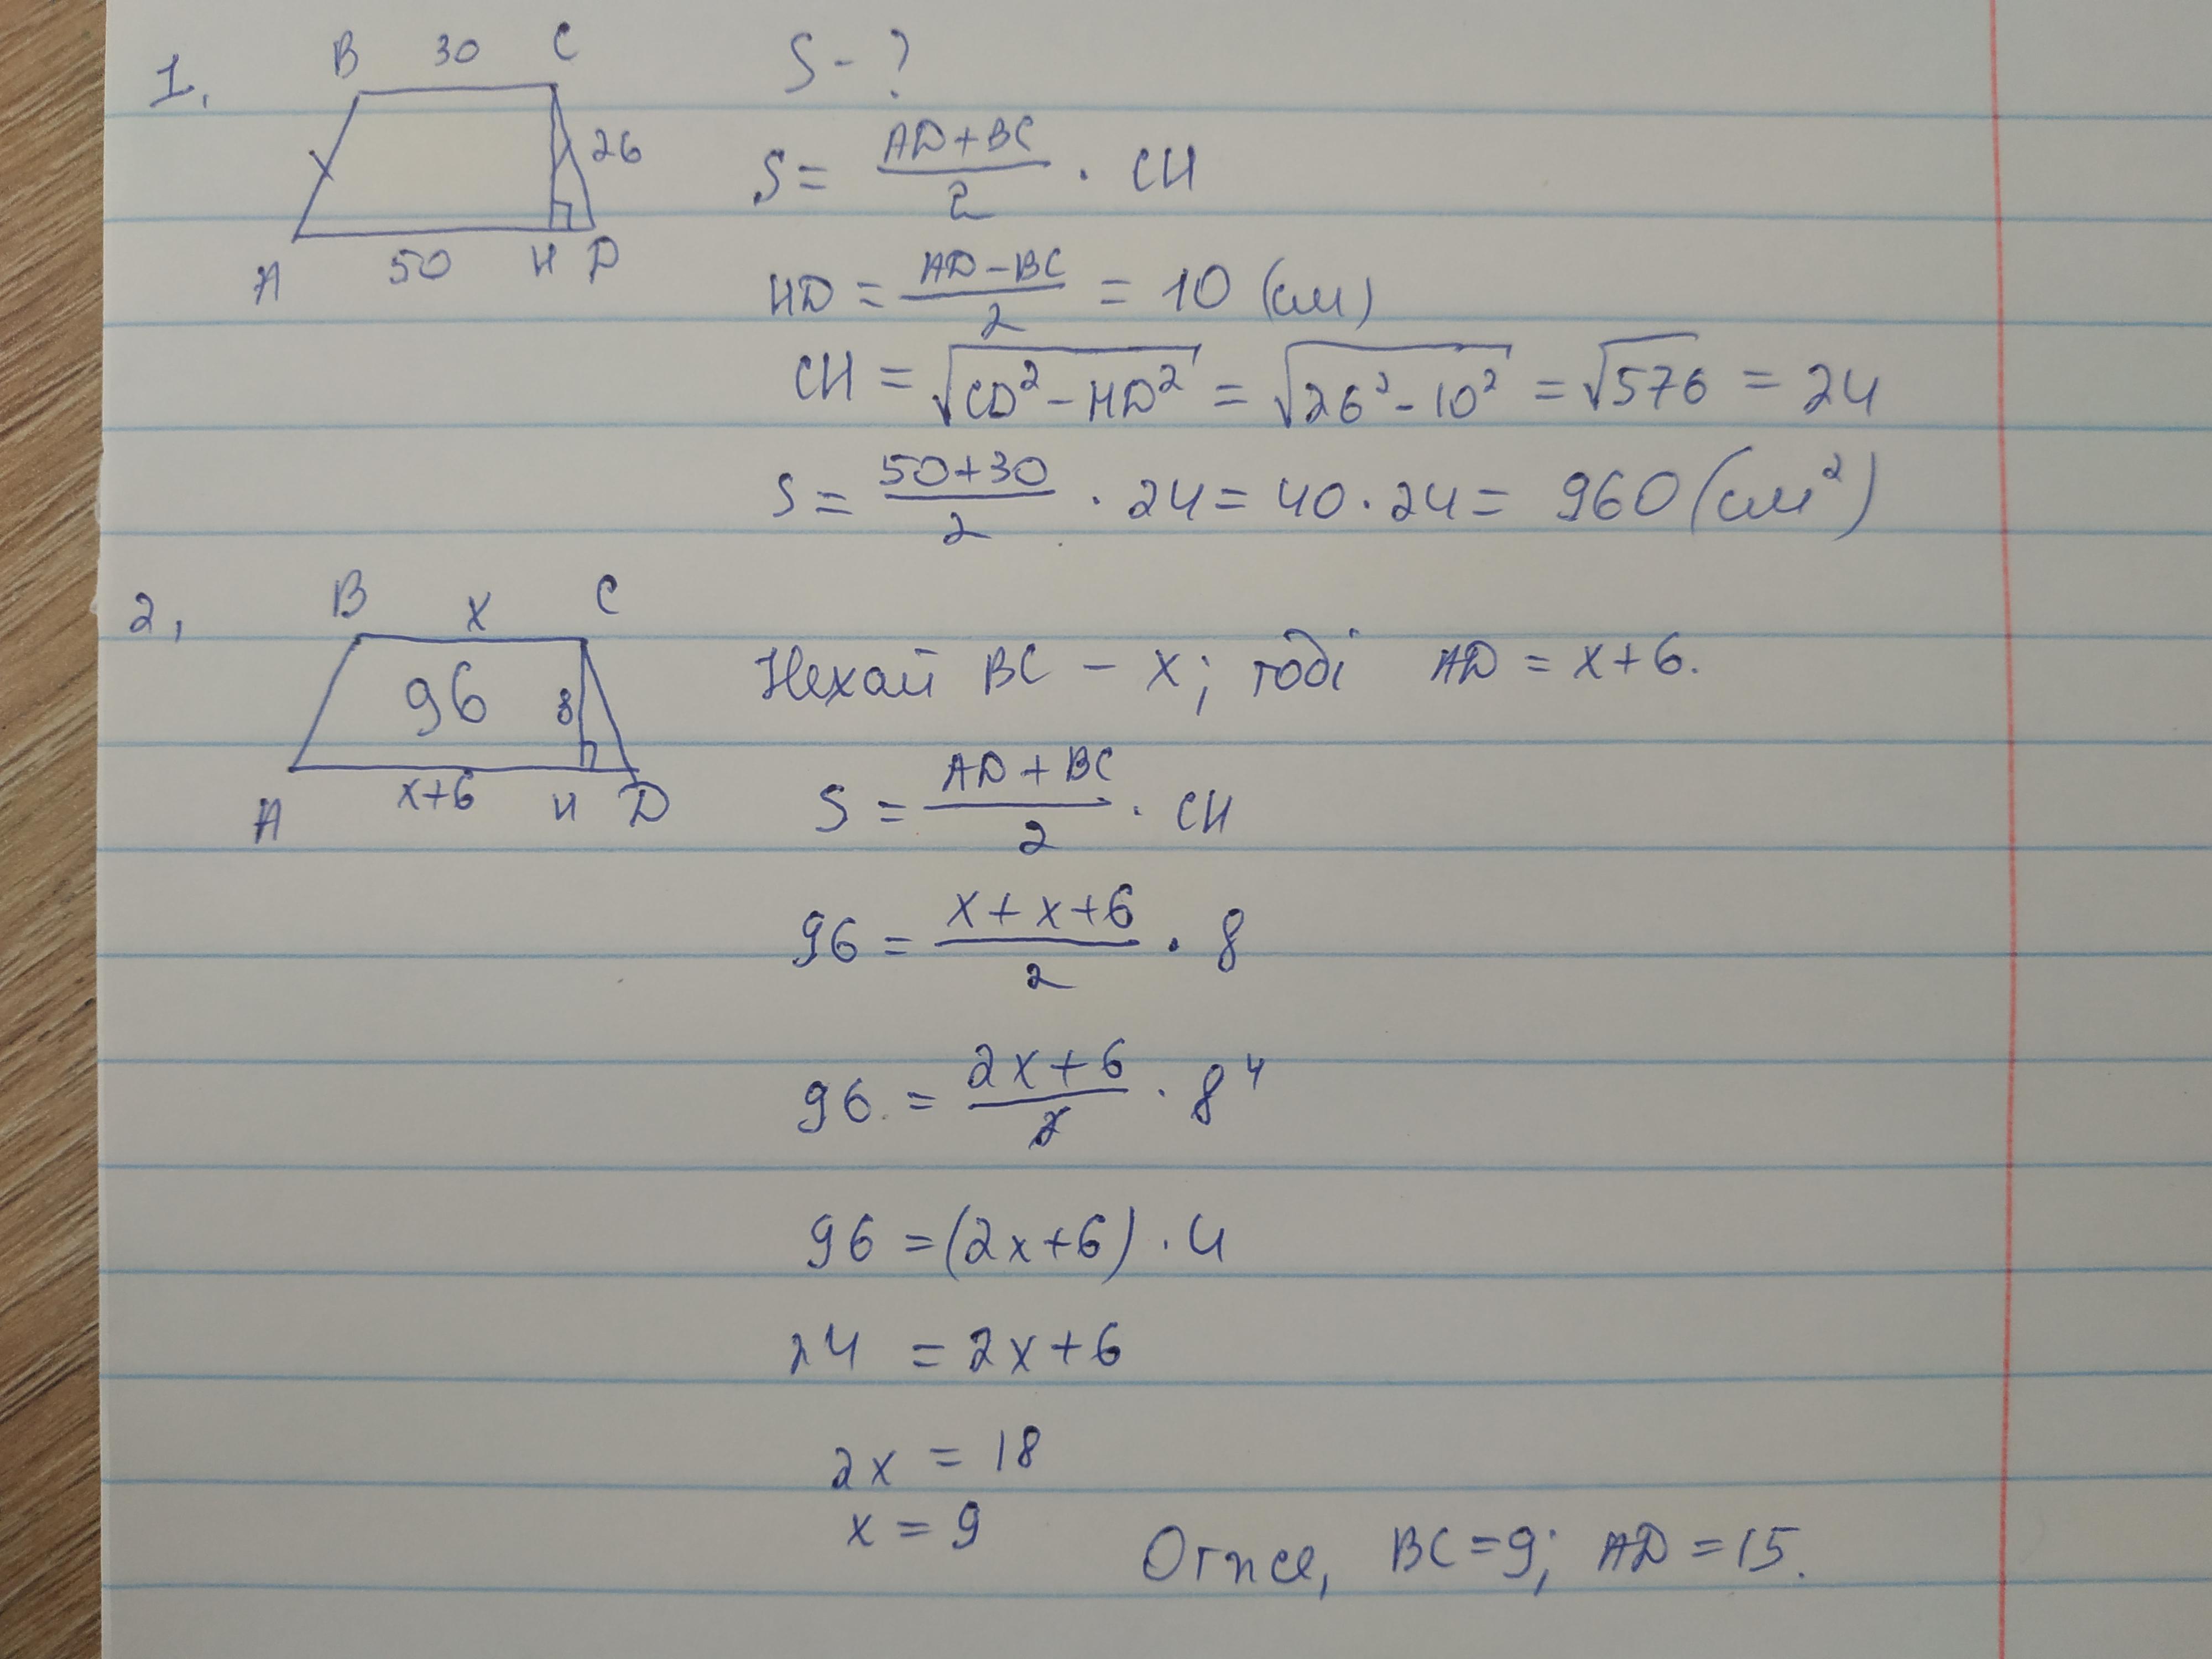 1.
B 30 C
26
A 50 H D
S - ?
S = (AD+BC)/2 · CH
HD = (AD-BC)/2 = 10 (см)
CH = √(CD² - HD²) = √(26² - 10²) = √576 = 24
S = (50+30)/2 · 24 = 40 · 24 = 960 (см²)
2,
B x C
96 8
A x+6 H D
Нехай BC - x; тоді AD = x+6.
S = (AD + BC)/2 · CH
96 = (x + x+6)/2 · 8
96 = (2x+6)/2 · 8 4
96 = (2x+6) · 4
24 = 2x+6
2x = 18
x = 9
Отже, BC=9; AD=15.